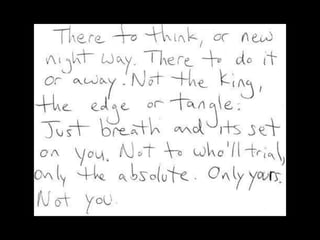 There to think, or new
night way. There to do it
or away. Not the King,
the edge or tangle.
Just breath and its set
on you. Not to who'll trial,
only the absolute. Only yours.
Not you.